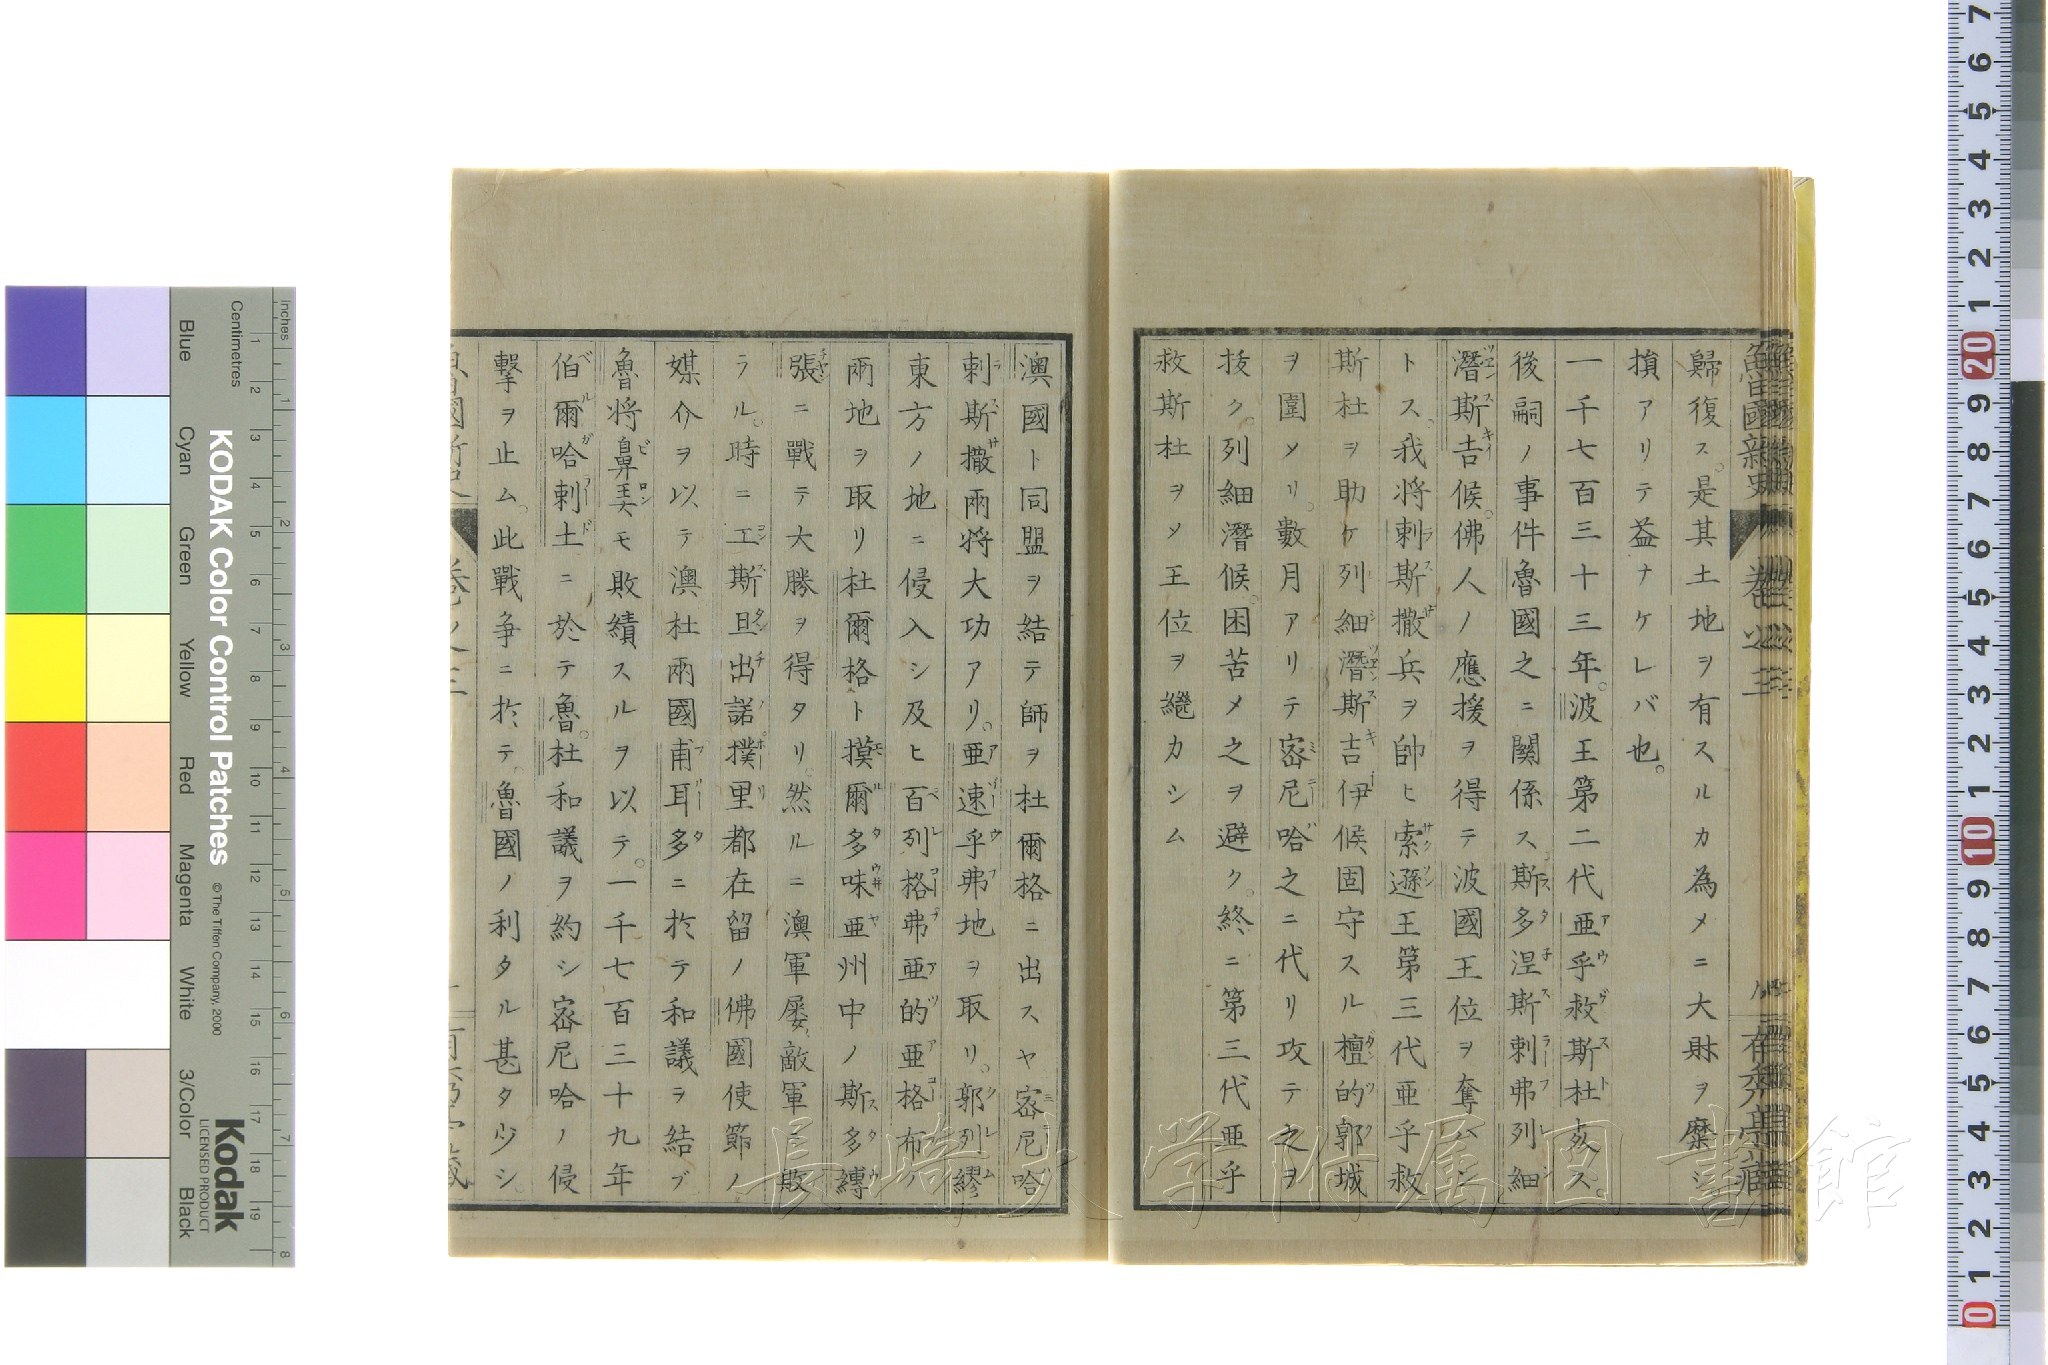 歸復ス。是其土地ヲ有スルカ為メニ大財ヲ糜シ
損アリテ益ナケレバ也。
一千七百三十三年。波王第二代亜乎救斯杜死ス。
後嗣ノ事件魯國之ニ關係ス。斯多涅斯剌弗列細
潛斯吉候。佛人ノ應援ヲ得テ波國王位ヲ奪ハン
トス。我将剌斯撒兵ヲ帥ヒ索遜王第三代亜乎救
斯杜ヲ助ケ列細潛斯吉伊候固守スル檀的郭城
ヲ圍メリ。數月アリテ宻尼哈之ニ代リ攻テ之ヲ
抜ク。列細潛候。困苦メ之ヲ避ク。終ニ第三代亜乎
救斯杜ヲメ王位ヲ繼カシム
澳國ト同盟ヲ結テ師ヲ杜爾格ニ出スヤ宻尼哈
剌斯撒兩将大功アリ。亜速乎弗地ヲ取リ。郭列繆
東方ノ地ニ侵入シ及ヒ百列格弗亜的亜格布
兩地ヲ取リ杜爾格ト摸爾多味亜州中ノ斯多縳
張ニ戰テ大勝ヲ得タリ。然ルニ澳軍屢敵軍ニ敗
ラル。時ニ工斯旦出諾撲里都在留ノ佛國使節ノ
媒介ヲ以テ澳杜兩國甫耳多ニ於テ和議ヲ結ブ
魯将鼻龔モ敗績スルヲ以テ。一千七百三十九年
伯爾哈剌土ニ於テ魯。杜和議ヲ約シ宻尼哈ノ侵
撃ヲ止ム。此戰争ニ於テ。魯國ノ利タル甚タ少シ。
魯國新史 巻之三
長崎大学附属図書館
KODAK Color Control Patches
© The Tiffen Company, 2000
Kodak
LICENSED PRODUCT
Inches
Centimetres
Blue
Cyan
Green
Yellow
Red
Magenta
White
3/Color
Black